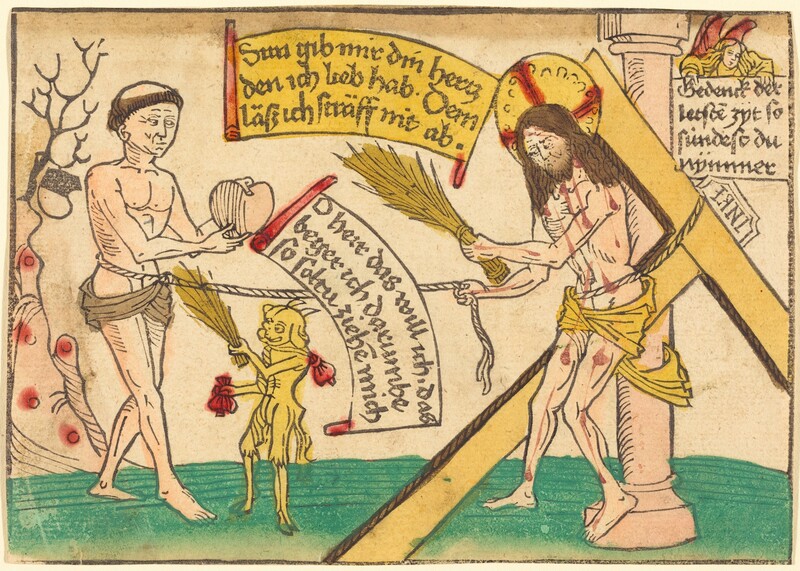 Sun gib mir din hertz
den ich lieb hab. Dem
läß ich sträff nit ab.
O herr das will ich. das
beger ich darumbe
so soltu ziehē mich
Gedenck der
letstē zyt so
sündest du
nymmer
INRI